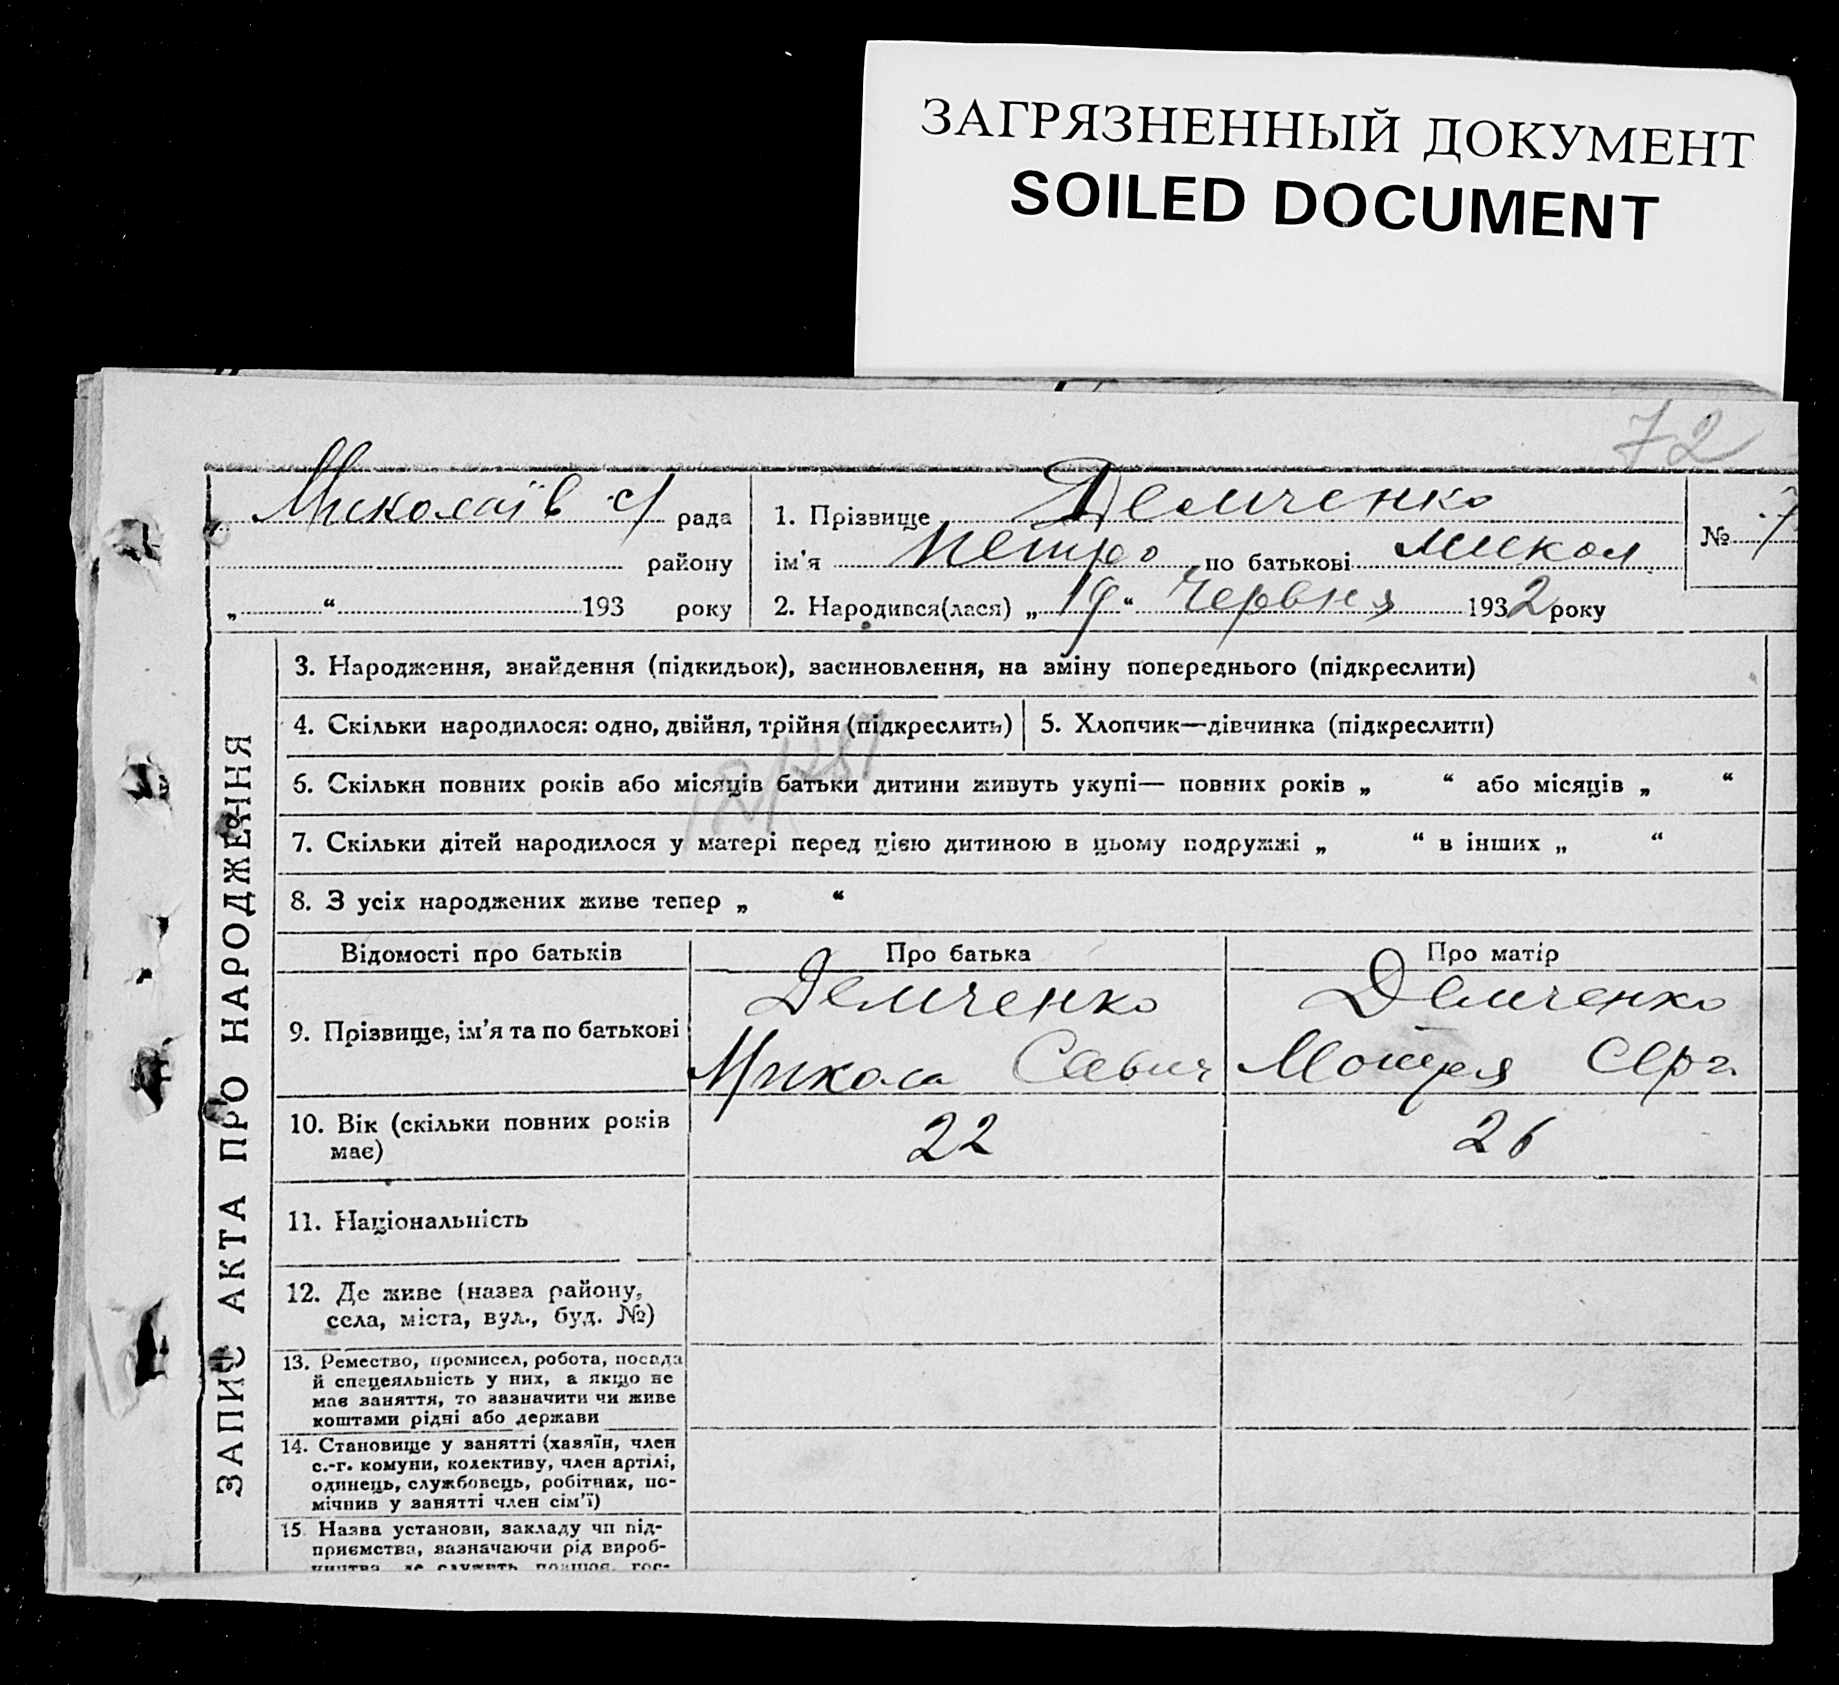 ЗАГРЯЗНЕННЫЙ ДОКУМЕНТ
SOILED DOCUMENT
72
Миколаїв с/ рада
району
„ “ 193 року
1. Прізвище Демченко
ім'я Петро по батькові Микол
2. Народився(лася) „19“ Червня 1932 року
№ 7
ЗАПИС АКТА ПРО НАРОДЖЕННЯ
3. Народження, знайдення (підкидьок), засиновлення, на зміну попереднього (підкреслити)
4. Скільки народилося: одно, двійня, трійня (підкреслить)
5. Хлопчик—дівчинка (підкреслити)
6. Скільки повних років або місяців батьки дитини живуть укупі— повних років „ “ або місяців „ “
7. Скільки дітей народилося у матері перед цією дитиною в цьому подружжі „ “ в інших „ “
8. З усіх народжених живе тепер „ “
Відомості про батьків Про батька Про матір
9. Прізвище, ім'я та по батькові
Демченко
Микола Савич
Демченко
Мотря Серг.
10. Вік (скільки повних років
має)
22 26
11. Національність
12. Де живе (назва району,
села, міста, вул., буд. №)
13. Ремество, промисел, робота, посада
й спецеяльність у них, а якщо не
має заняття, то зазначити чи живе
коштами рідні або держави
14. Становище у занятті (хазяїн, член
с.-г. комуни, колективу, член артілі,
одинець, службовець, робітник, по-
мічнив у занятті член сім'ї)
15. Назва установи, закладу чи під-
приємства, зазначаючи рід вироб-
ництва, де служить